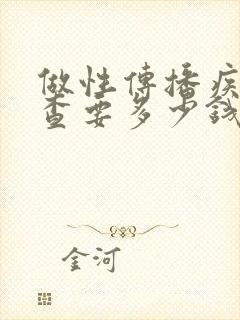 做性傳播疾
查要多少錢
金河